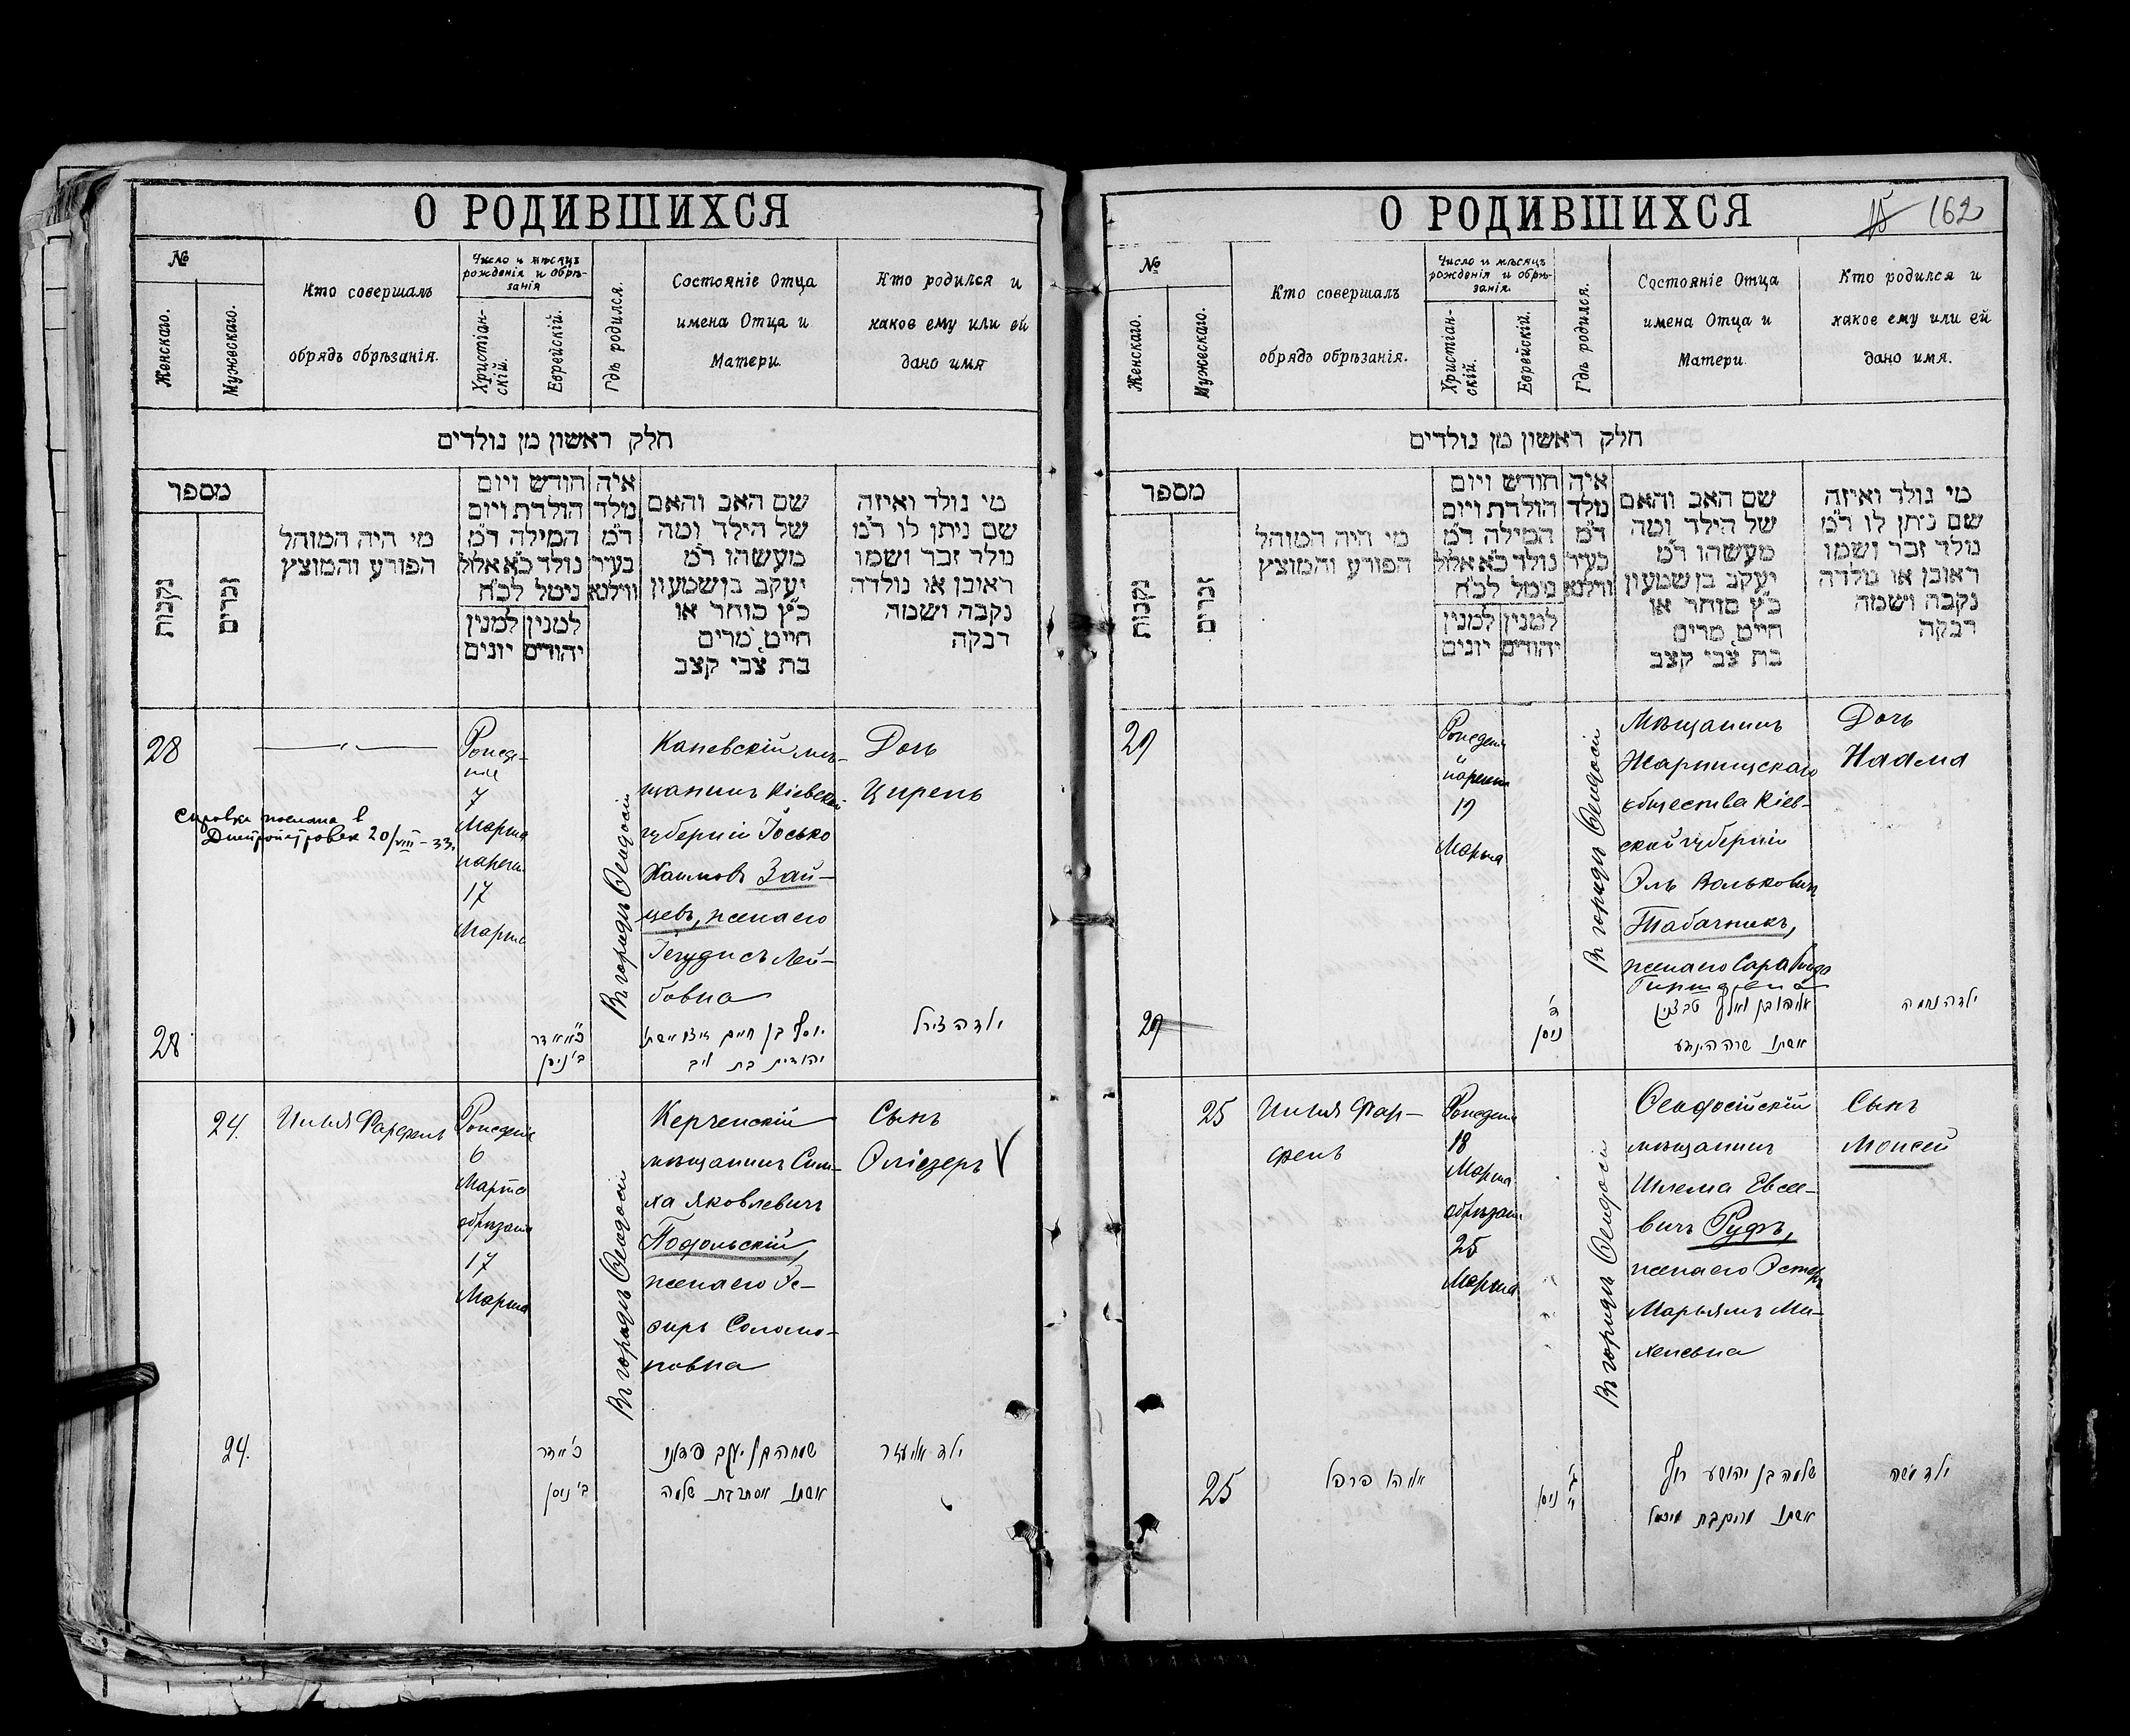 О РОДИВШИХСЯ
№
Женскаго.
Мужескаго.
Кто совершалъ
обрядъ обрѣзанія.
Число и мѣсяцъ
рожденія и обрѣ-
занія
Христіан-
скій.
Еврейскій.
Гдѣ родился.
Состояніе Отца
имена Отца и
Матери.
Кто родился и
какое ему или ей
дано имя
חלק ראשון מן נולדים
מספר
נקבות
זכרים
מי היה המוהל
הפורע והמוצץ
חודש ויום
הולדת ויום
המילה ד״מ
נולד כ״א אלול
נימל לכ״ח
למנין למנין
יהודים יונים
איה
נולד
ד״מ
בעיר
ווילנא
שם האב והאם
של הילד ומה
מעשהו ד״מ
יעקב בן שמעון
כ״ץ סוחר או
חייט מרים
בת צבי קצב
מי נולד ואיזה
שם ניתן לו ד״מ
נולד זכר ושמו
ראובן או נולדה
נקבה ושמה
רבקה
28
Справка послана в
Днепропетровск 20/VIII-33.
Рожде-
ніе
7
Марта
нареч.
17
Марта
Въ городѣ Ѳеодосіи
Каневскій мѣ-
щанинъ Кіевской
губерніи Іосько
Хаимовъ Зай-
цевъ, жена его
Іегудисъ Лей-
бовна
Дочь
Цирень
28
ב׳ ניסן
יוסף בן חיים
יהודית בת ליב
ילדה צירל
24.
Илья Фарфель
Рожденіе
6
Марта
обрѣзані
17
Марта
Въ городѣ Ѳеодосіи
Керченскій
мѣщанинъ Сим-
ха Яковлевичъ
Подольскій,
жена его Эс-
фирь Соломо-
новна
Сынъ
Эліезеръ V
24.
ב׳ ניסן
שמחה בן יעקב
אשתו אסתר בת שלמה
ילד אליעזר
О РОДИВШИХСЯ
15 162
№
Женскаго.
Мужескаго.
Кто совершалъ
обрядъ обрѣзанія.
Число и мѣсяцъ
рожденія и обрѣ-
занія.
Христіан-
скій.
Еврейскій.
Гдѣ родился.
Состояніе Отца
имена Отца и
Матери.
Кто родился и
какое ему или ей
дано имя.
חלק ראשון מן נולדים
מספר
נקבות
זכרים
מי היה המוהל
הפורע והמוצץ
חודש ויום
הולדת ויום
המילה ד״מ
נולד כ״א אלול
נימל לכ״ח
למנין למנין
יהודים יונים
איה
נולד
ד״מ
בעיר
ווילנא
שם האב והאם
של הילד ומה
מעשהו ד״מ
יעקב בן שמעון
כ״ץ סוחר או
חייט מרים
בת צבי קצב
מי נולד ואיזה
שם ניתן לו ד״מ
נולד זכר ושמו
ראובן או נולדה
נקבה ושמה
רבקה
29
Рожден
и
наречен
19
Марта
Въ городѣ Ѳеодосіи
Мѣщанинъ
общества Кіев-
ской губерніи
Эль Вольковичъ
Табачникъ,
жена его Сара
Гиршовна
Дочь
Наама
29
ניסן
אשתו שרה הינדע
ילדה נחמה
25
Илья Фар-
фель
Рожденіе
18
Марта
обрѣзані
25
Марта
Въ городѣ Ѳеодосіи
Ѳеодосійскій
мѣщанинъ
Шлема Евсее-
вичъ Руфъ,
жена его Эстеръ
Марьямъ Ми-
хелевна
Сынъ
Моисей
25
אליהו פרפל
ניסן
שלמה בן יהושע רוף
אשתו מרים בת מיכאל
ילד משה